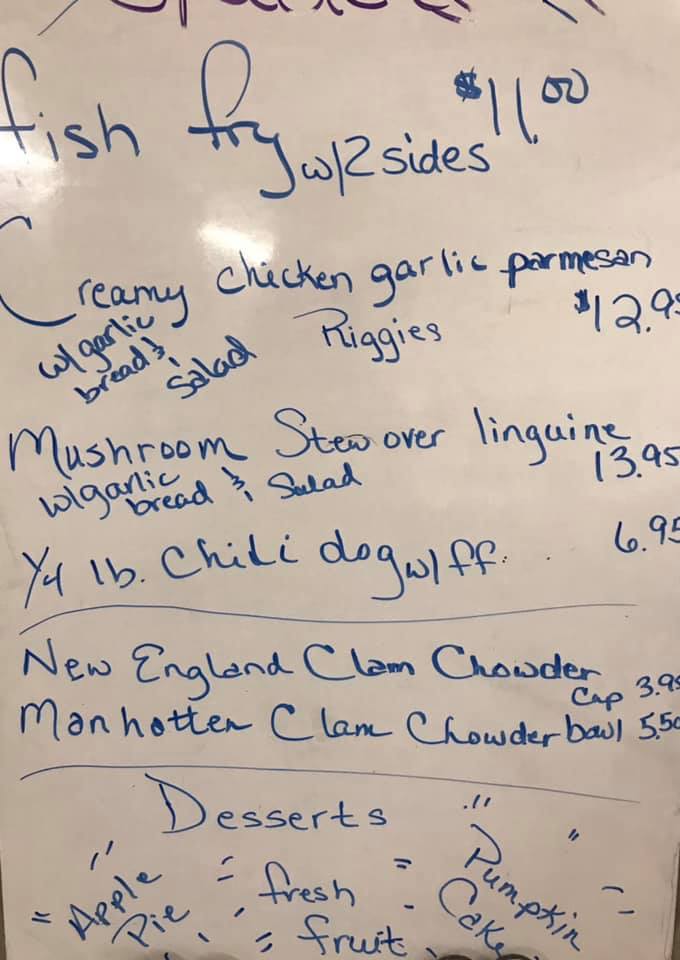 fish fry w/2 sides $11.00
Creamy chicken garlic parmesan
Riggies $12.95
w/garlic
bread &
salad
Mushroom Stew over linguine
13.95
w/garlic
bread & Salad
1/4 lb. Chili dog w/ff. . 6.95
New England Clam Chowder
Cup 3.95
Manhatten Clam Chowder bowl 5.50
Desserts
Apple
Pie
fresh
fruit
Pumpkin
Cake